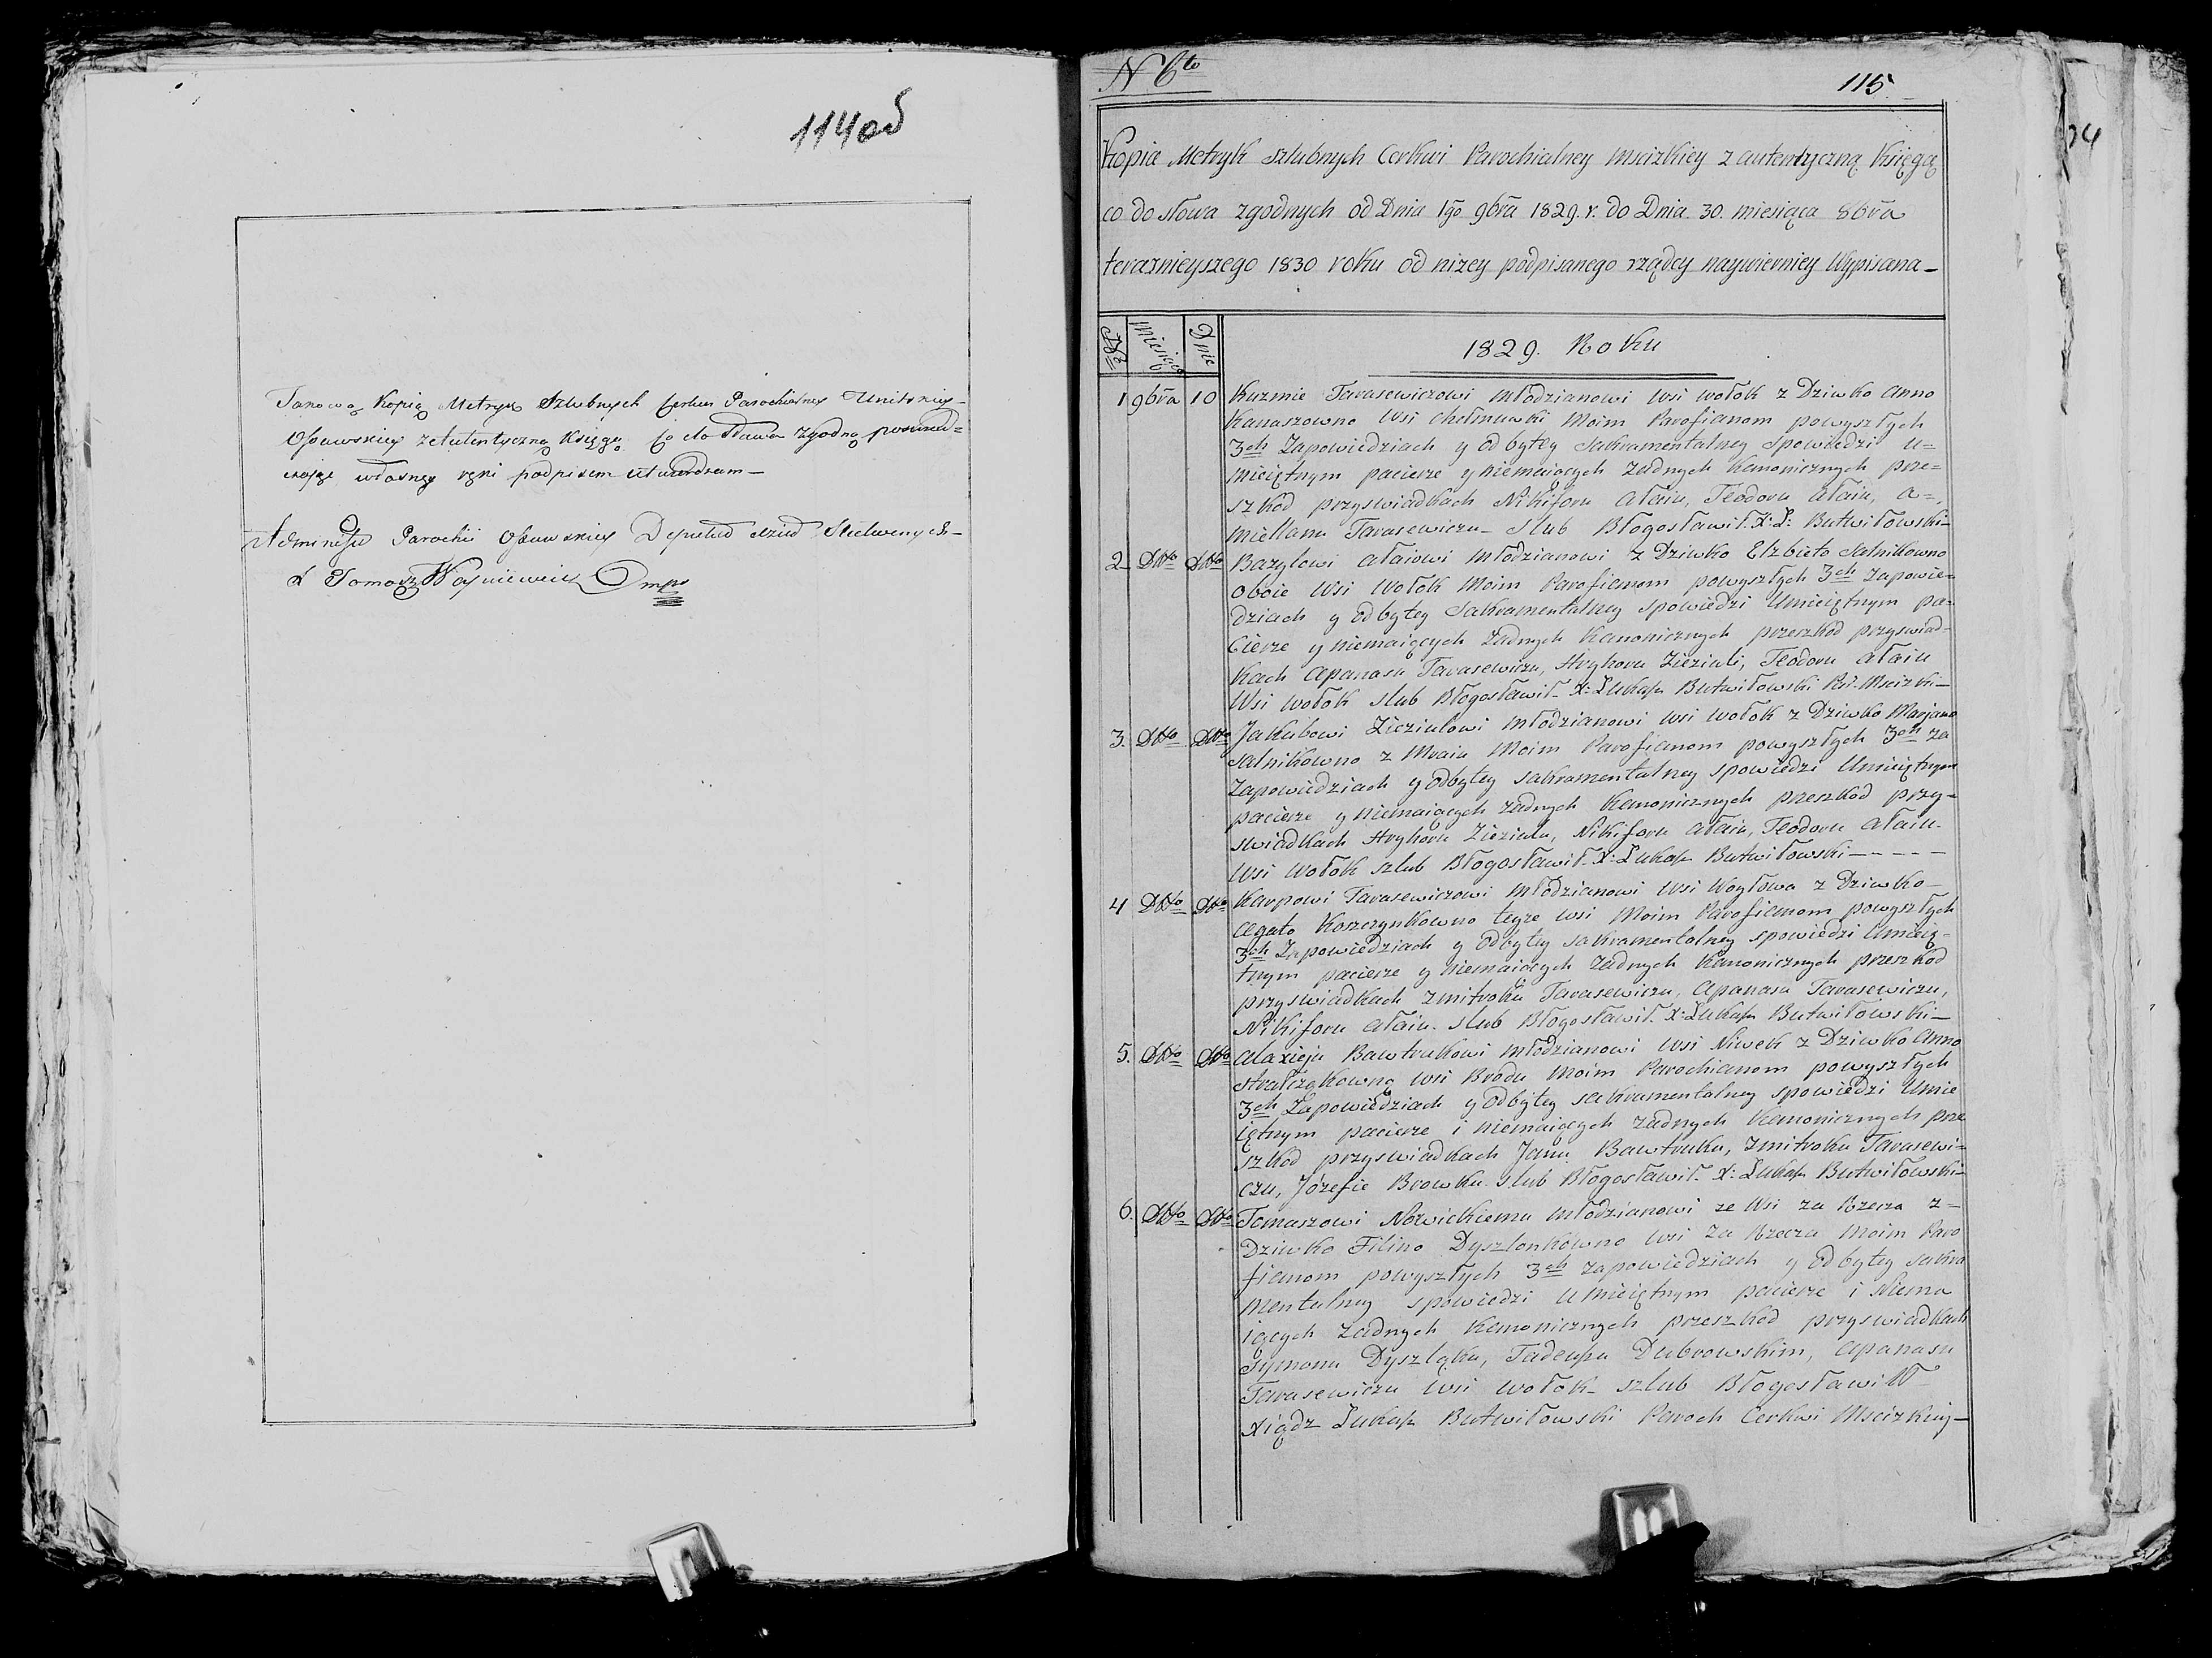 114 об
Tanową Kopią Metryk Szlubnych Cerkwi Parochialney Unitskiey
Ossowskiey z Autentyczną Księgą co do słowa zgodną poswiad=
czając własney ręki podpisem utwierdzam —
Parochii Ossowskiey Deputat
X Tomasz Woyniewicz mp
N 6to
115
Kopia Metryk szlubnych Cerkwi Parochialney Mscizkiey z autentyczną Księgą
co do słowa zgodnych od Dnia 1go 9bra 1829. r. do Dnia 30. miesiąca 8bra
teraznieyszego 1830 roku od nizey podpisanego rządcy naywierniey Wypisana —
No Miesiące Dnie
1829. Roku
1 9bra 10 Kuzmie Tarasewiczowi Młodzianowi Wsi Wołok z Dziwko Anno
Kanaszowno Wsi Chołmuwki Moim Parofianom powyszłych
3ch Zapowiedziach y odbytey Sakramentalney Spowiedzi u=
mieiętnym pacierze y niemaiących żadnych Kanonicznych prze=
szkod przyswiadkach Nikiforu Ałaiu, Teodoru Ałaiu, A=
miellanu Tarasewiczu — Slub Błogosławił. X: Ł: Butwiłowski —
2 Dtto Dtto Bazylowi Ałaiowi Młodzianowi z Dziwko Elzbieto Salnikowno
oboie Wsi Wołok Moim Parofianom powyszłych 3ch Zapowie=
dziach y odbytey Sakramentalney Spowiedzi Umieiętnym pa=
cierze y niemaiących żadnych Kanonicznych przeszkod przyswiad=
kach Apanasu Tarasewiczu, Hryhoru Zieziuli, Teodoru Ałaiu
Wsi Wołok slub Błogosławił — X: Łukasz Butwiłowski Par. Mscizki —
3. Dtto Dtto Jakubowi Zieziulowi Młodzianowi Wsi Wołok z Dziwko Marjano
Salnikowno z Mraiu Moim Parofianom powyszłych 3ch za
Zapowiedziach y odbytey sakramentalney spowiedzi Umieiętnym
pacierze y niemaiących żadnych Kanonicznych przeszkod przy=
swiadkach Hryhoru Zieziulu, Nikiforu Ałaiu, Teodoru Ałaiu.
Wsi Wołok szlub Błogosławił. X: Łukasz Butwiłowski — — — —
4 Dtto Dtto Karpowi Tarasewiczowi Młodzianowi Wsi Wogłowa z Dziwko —
Agato Korszynkowno teyze Wsi Moim Parofianom powyszłych
3ch Zapowiedziach y odbytey sakramentalney spowiedzi Umieię=
tnym pacierze y niemaiących żadnych Kanonicznych przeszkod
przyswiadkach Zmitroku Tarasewiczu, Apanasu Tarasewiczu,
Nikiforu Ałaiu. Slub Błogosławił. X: Łukasz Butwiłowski —
5. Dtto Dtto Alaxieju Bawtrukowi Młodzianowi Wsi Niwek z Dziwko Anno
Strałczakowno Wsi Brodu Moim Parochianom powyszłych
3ch Zapowiedziach y odbytey sakramentalney spowiedzi Umie
iętnym pacierze i niemaiących żadnych Kanonicznych prze
szkod przyswiadkach Janu Bawtruku, Zmitroku Tarasewi=
czu, Józefie Browku. Slub Błogosławił. X: Łukasz Butwiłowski —
6. Dtto Dtto Tomaszowi Nowickiemu Młodzianowi ze Wsi Za Rzecza z=
Dziwko Filino Dyszlonkowno Wsi Za Rzecza Moim Paro
fianom powyszłych 3ch zapowiedziach y odbytey sakra
mentalney spowiedzi umieiętnym pacierze i Niema
iących żadnych Kanonicznych przeszkod przyswiadkach
Symonu Dyszląku, Tadeuszu Dubrowskim, Apanasu
Tarasewiczu Wsi Wołok — szlub Błogosławił
Xiądz Łukasz Butwiłowski Paroch Cerkwi Mscizkiey —